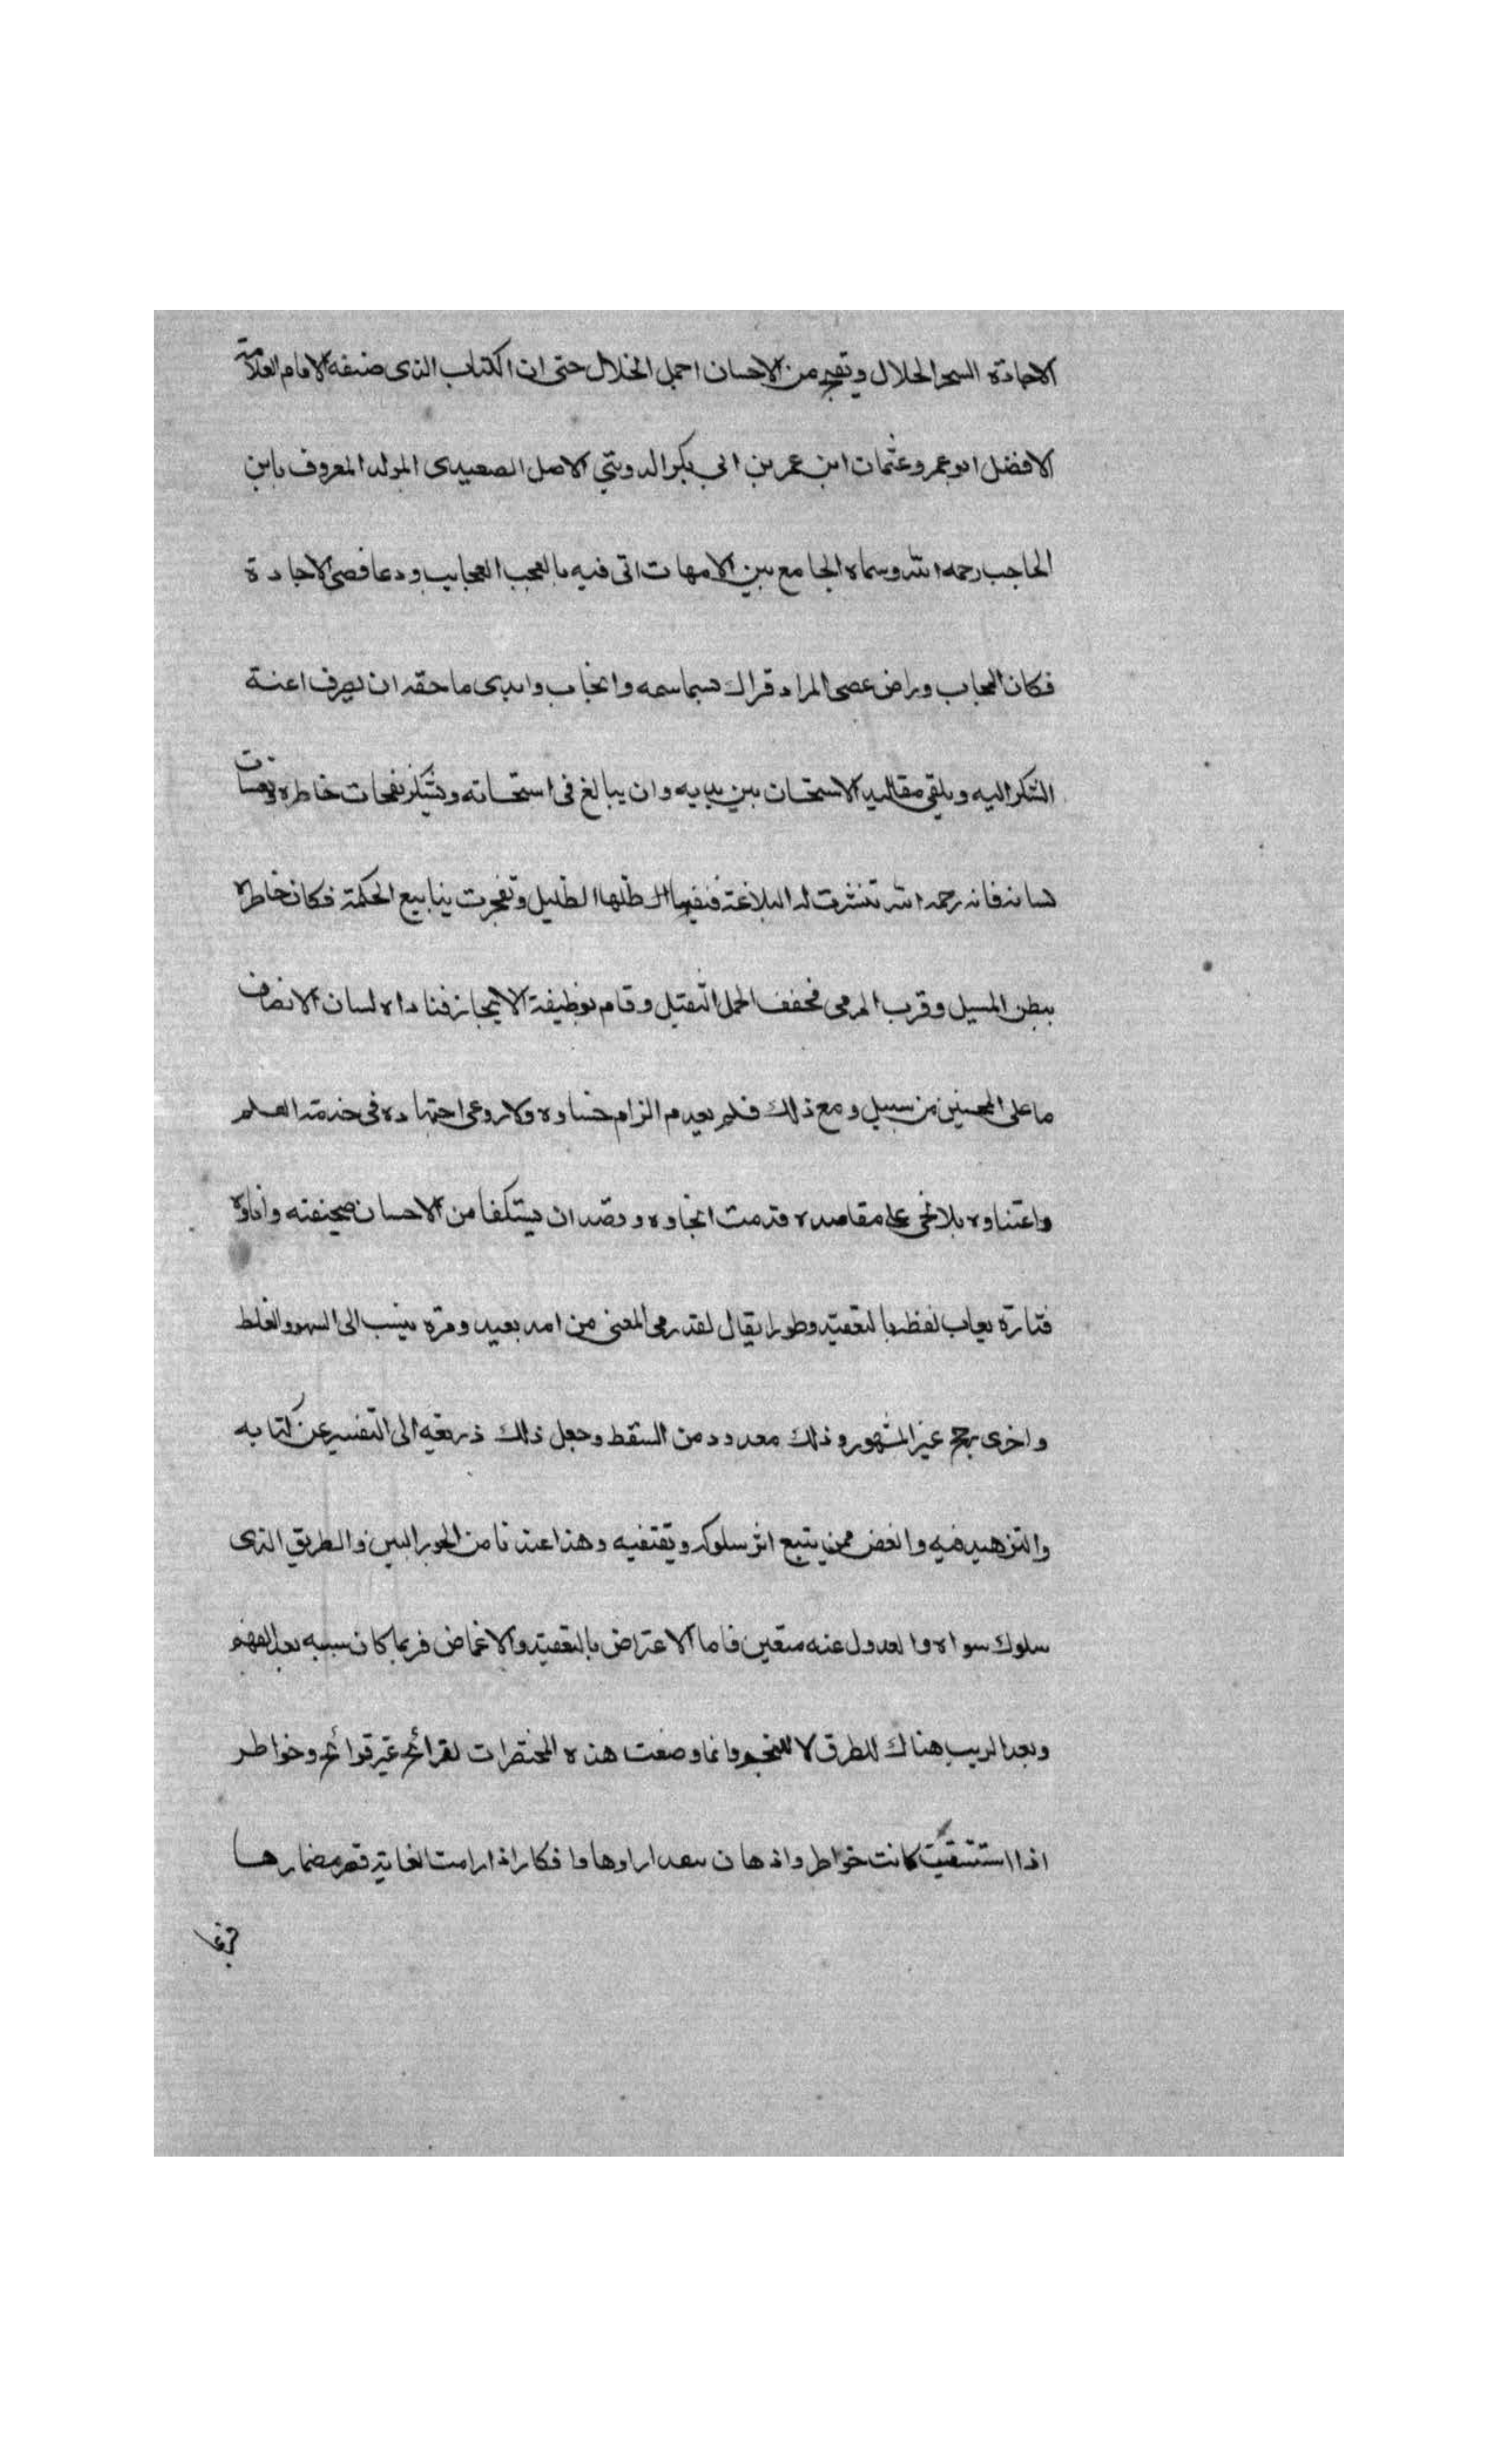 الاجادة السحر الحلال وتفجر من الاحسان اجمل الخلال حتى ان الكتاب الذى صنفه الامام العلامة
الافضل ابو عمرو عثمان ابن عمر بن ابي بكر الدويني الاصل الصعيدى المولد المعروف بابن
الحاجب رحمه الله وسماه الجامع بين الامهات اتى فيه بالعجب العجايب ودعا قصى الاجادة
فكان المجاب وراض عصى المراد وانجاب وابدى ما حقه ان يصرف اعنة
الشكر اليه ويلقى مقاليد الاستحسان بين يديه وان يبالغ فى استحسانه ويشكر نفحات خاطره ونفثات
لسانه فانه رحمه الله تنشرت له البلاغة فتفيا ظلها الظليل وتفجرت ينابيع الحكمة فكان خاطره
ببطن المسيل وقرب المرمى فخفف الحمل الثقيل وقام بوظيفة الايجاز فناداه لسان الانصاف
ما على المحسنين من سبيل ومع ذلك فلم يعدم الزام حساده ولا روعى اجتهاده فى خدمة العلم
واعتناوه بلا نحى على مقاصده فذمت انحاوه وقصد ان يستكفا من الاحسان صحيفته واناوه
فتارة يعاب لفظه بالتعقيد وطورا يقال لقد رمى المعنى من امد بعيد ومرة ينسب الى السهو والغلط
واخرى رجح غير المشهور وذلك معدود من السقط وجعل ذلك ذريعة الى التنفير عن كتابه
والتزهيد فيه والغض ممن يتبع اثر سلوكه ويقتفيه وهذا عندنا من الجور البين والطريق الذى
سلوك سواه والعدول عنه متعين فاما الاعتراض بالتعقيد والاغماض فربما كان سببه بعد الفهم
وبعد الريب هناك للطرق لا للنجم وانما وضعت هذه المختصرات لقرائح غير قرائح وخواطر
اذا استسقيت كانت خواطر واذهان وافكار اذا رامت الغاية قصر مضمارها
فربما